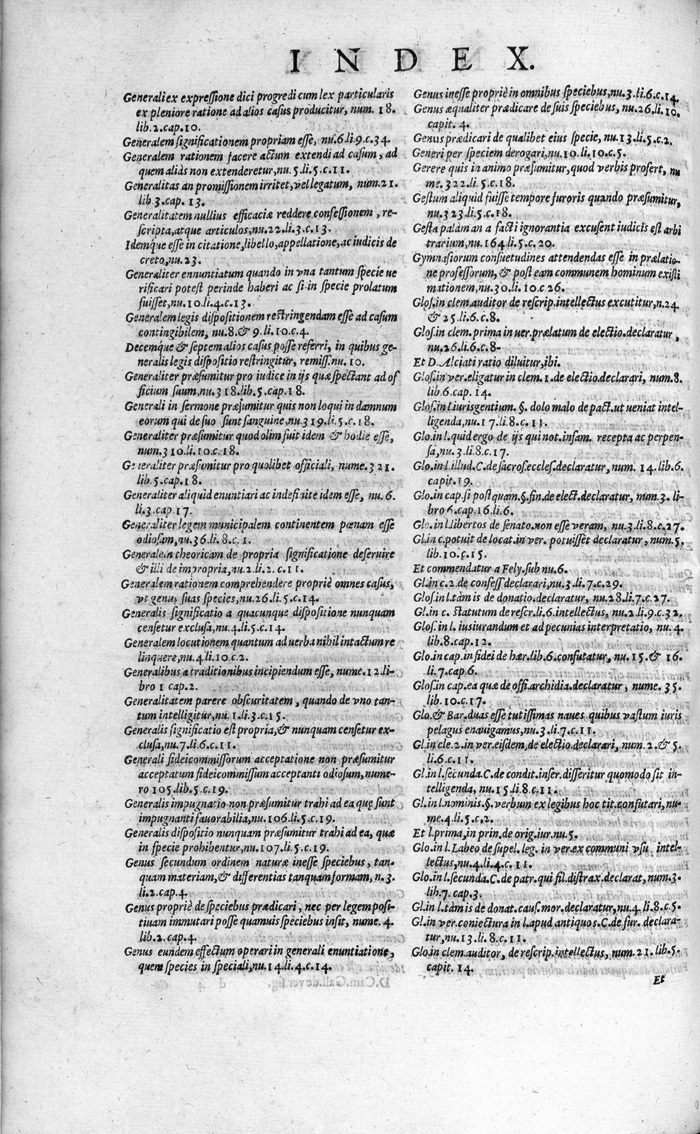 INDEX.
Generali ex expressione dici progredi cum lex particularis
ex pleniore ratione ad alios casus producitur, num. 18.
lib.2.cap.10.
Generalem significationem propriam esse, nu.6.li.9.c.34.
Generalem rationem facere actum extendi ad casum, ad
quem aliàs non extenderetur, nu.5.li.5.c.11.
Generalitas an promissionem irritet, vel legatum, num.21.
lib.3.cap. 13.
Generalitatem nullius efficaciæ reddere confessionem, re-
scripta, atque articulos, nu.22.li.3.c.13.
Idemque esse in citatione, libello, appellatione, ac iudicis de
creto, nu.23.
Generaliter ennuntiatum quando in vna tantum specie ue
rificari potest perinde haberi ac si in specie prolatum
fuisset, nu.10.li.4.c.13.
Generalem legis dispositionem restringendam esse ad casum
contingibilem, nu.8.& 9.li.10.c.4.
Decemque & septem alios casus posse referri, in quibus ge-
neralis legis dispositio restringitur, remiss. nu. 10.
Generaliter præsumitur pro iudice in ijs quæ spectant ad of
ficium suum, nu.318.lib.5.cap.18.
Generali in sermone præsumitur quis non loqui in damnum
eorum qui de suo sunt sanguine, nu.319.li.5.c.18.
Generaliter præsumitur quod olim fuit idem & hodie esse,
num.310.li.10.c.18.
Generaliter præsumitur pro quolibet officiali, nume.321.
lib.5.cap.18.
Generaliter aliquid enuntiari ac indefinite idem esse, nu.6.
li.3.cap.17.
Generaliter legem municipalem continentem pœnam esse
odiosam, nu.36.li.8.c.1.
Generalem theoricam de propria significatione deseruire
& illi de impropria, nu.2.li.2.c.11.
Generalem rationem comprehendere propriè omnes casus,
vt genus suas species, nu.26.li.5.c.14.
Generalis significatio a quacunque dispositione nunquam
censetur exclusa, nu.4.li.5.c.14.
Generalem locutionem quantum ad uerba nihil intactum re
linquere, nu.4.li.10.c.2.
Generalibus a traditionibus incipiendum esse, nume.12.li-
bro 1 cap.2.
Generalitatem parere obscuritatem, quando de vno tan-
tum intelligitur, nu.1.li.3.c.15.
Generalis significatio est propria, & nunquam censetur ex-
clusa, nu.7.li.6.c.11.
Generali fideicommissorum acceptatione non præsumitur
acceptatum fideicommissum acceptanti odiosum, nume-
ro 105.lib.5.c.19.
Generalis impugnatio non præsumitur trahi ad ea quę sunt
impugnanti fauorabilia, nu.106.li.5.c.19.
Generalis dispositio nunquam præsumitur trahi ad ea, quæ
in specie prohibentur, nu.107.li.5.c.19.
Genus secundum ordinem naturæ inesse speciebus, tan-
quam materiam, & differentias tanquam formam, n.3.
li.2.cap.4.
Genus propriè de speciebus prædicari, nec per legem posi-
tiuam immutari posse quamuis speciebus insit, nume.4.
lib.2.cap.4.
Genus eundem effectum operari in generali enuntiatione,
quem species in speciali, nu.14.li.4.c.14.
Genus inesse propriè in omnibus speciebus, nu.3.li.6.c.14
Genus æqualiter prædicare de suis speciebus, nu.26.li.10.
capit.4.
Genus prædicari de qualibet eius specie, nu.13.li.5.c.2.
Generi per speciem derogari, nu.10.li.10.c.5.
Gerere quis in animo præsumitur, quod verbis profert, nu
me.322.li.5.c.18.
Gestum aliquid fuisse tempore furoris quando præsumitur,
nu.323.li.5.c.18.
Gesta palàm an a facti ignorantia excusent iudicis est arbi
trarium, nu.164.li.5.c.20.
Gymnasiorum consuetudines attendendas esse in prælatio-
ne professorum, & post eam communem hominum existi
mationem, nu.30.li.10.c 26.
Glos.in clem.auditor de rescrip.intellectus excutitur, n.24
& 25.li.6.c.8.
Glos.in clem.prima in uer.prælatum de electio.declaratur,
nu.26.li.6.c.8-
Et D.Alciati ratio diluitur, ibi.
Glos.in ver.eligatur in clem.1.de electio.declarari, num.8.
lib.6.cap.14.
Glos.in l.iurisgentium.§.dolo malo de pact.ut ueniat intel-
ligenda, nu.17.li.8.c.11.
Glo.in l.quid ergo de ijs qui not.infam. recepta ac perpen-
sa, nu.3.li.8.c.17.
Glo.in l.illud.C.de sacros.eccles.declaratur, num.14.lib.6.
capit.19.
Glo.in cap.si postquam.§.fin.de elect.declaratur, num.3.li-
bro 6.cap.16.li.6.
Glo.in l.libertos de senato.non esse veram, nu.3.li.8.c.27.
Gl.in c.potuit de locat.in ver. potuisset declaratur, num.5.
lib.10.c.15.
Et commendatur a Fely.sub nu.6.
Gl.in c.2.de confess.declarari, nu.3.li.7.c.29.
Glos.in l.tàm is de donatio.declaratur, nu.28.li.7.c.27.
Gl.in c.statutum de rescr.li.6.intellectus, nu.2.li.9.c.32.
Glos.in l. iusiurandum et ad pecunias interpretatio, nu.4.
lib.8.cap.12.
Glo.in cap.in fidei de hær.lib.6.confutatur, nu.15.& 16.
li.7.cap 6.
Glos.in cap.ea quæ de offi.archidia.declaratur, nume.35.
lib.10.c.17.
Glo.& Bar.duas esse tutissimas naues quibus vastum iuris
pelagus enauigamus, nu.3.li.7.c.11.
Gl.in cle.2.in ver.eisdem, de electio.declarari, num.2.& 5.
li.6.c.11.
Gl.in l.secunda.C.de condit.inser.disseritur quomodo sit in-
telligenda, nu.15.li.8.c.11.
Gl.in l.nominis.§.verbum ex legibus hoc tit.confutari, nu-
me.4.li.5.c.2.
Et l.prima, in prin.de orig.iur.nu.5.
Glo.in l.Labeo de supel.leg.in ver.ex communi vsu intel-
lectus, nu.4.li.4.c.11.
Glo.in l.secunda.C.de patr.qui fil.distrax.declarat, num.3.
lib.7.cap.3.
Gl.in l.tàm is de donat.caus.mor.declaratur, nu.4.li.8.c.5.
Gl.in ver.coniectura in l.apud antiquos.C.de fur.declara-
tur, nu.13.li.8.c.11.
Glo.in clem.auditor, de rescrip.intellectus, num.21.lib.5.
capit.14.
Et